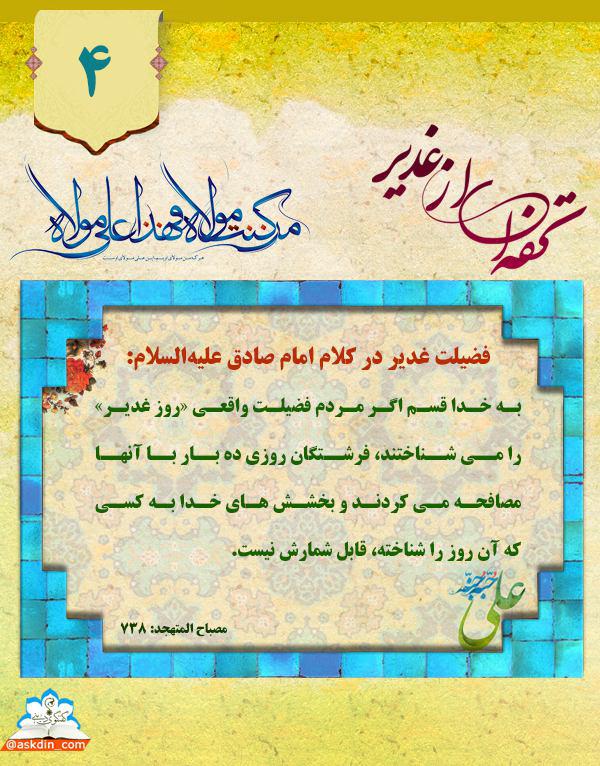 ۴
تحفه ای از غدیر
من کنت مولاه فهذا علی مولاه
هر که من مولای اویم این علی مولای اوست
فضیلت غدیر در کلام امام صادق علیه‌السلام:
به خدا قسم اگر مردم فضیلت واقعی «روز غدیر»
را می شناختند، فرشتگان روزی ده بار با آنها
مصافحه می کردند و بخشش های خدا به کسی
که آن روز را شناخته، قابل شمارش نیست.
علی حبه جنة
مصباح المتهجد: ۷۳۸
@askdin_com